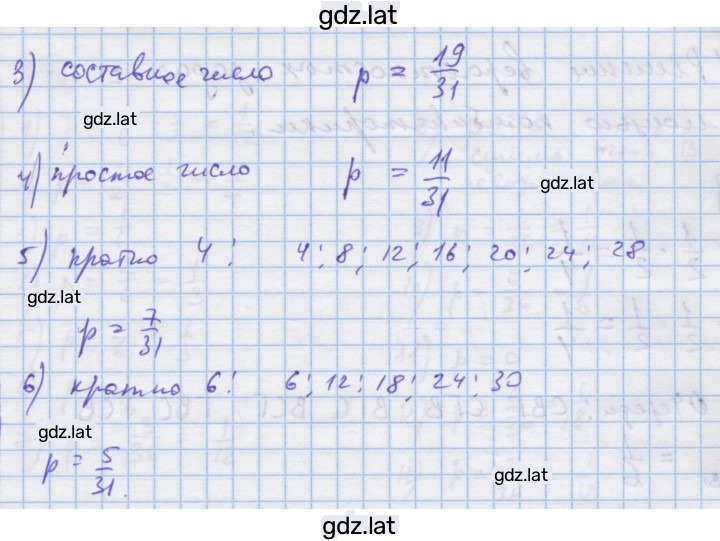 gdz.lat
3) составное число p = 19/31
gdz.lat
4) простое число p = 11/31
gdz.lat
5) кратно 4: 4; 8; 12; 16; 20; 24; 28
gdz.lat
p = 7/31
6) кратно 6: 6; 12; 18; 24; 30
gdz.lat
p = 5/31.
gdz.lat
gdz.lat